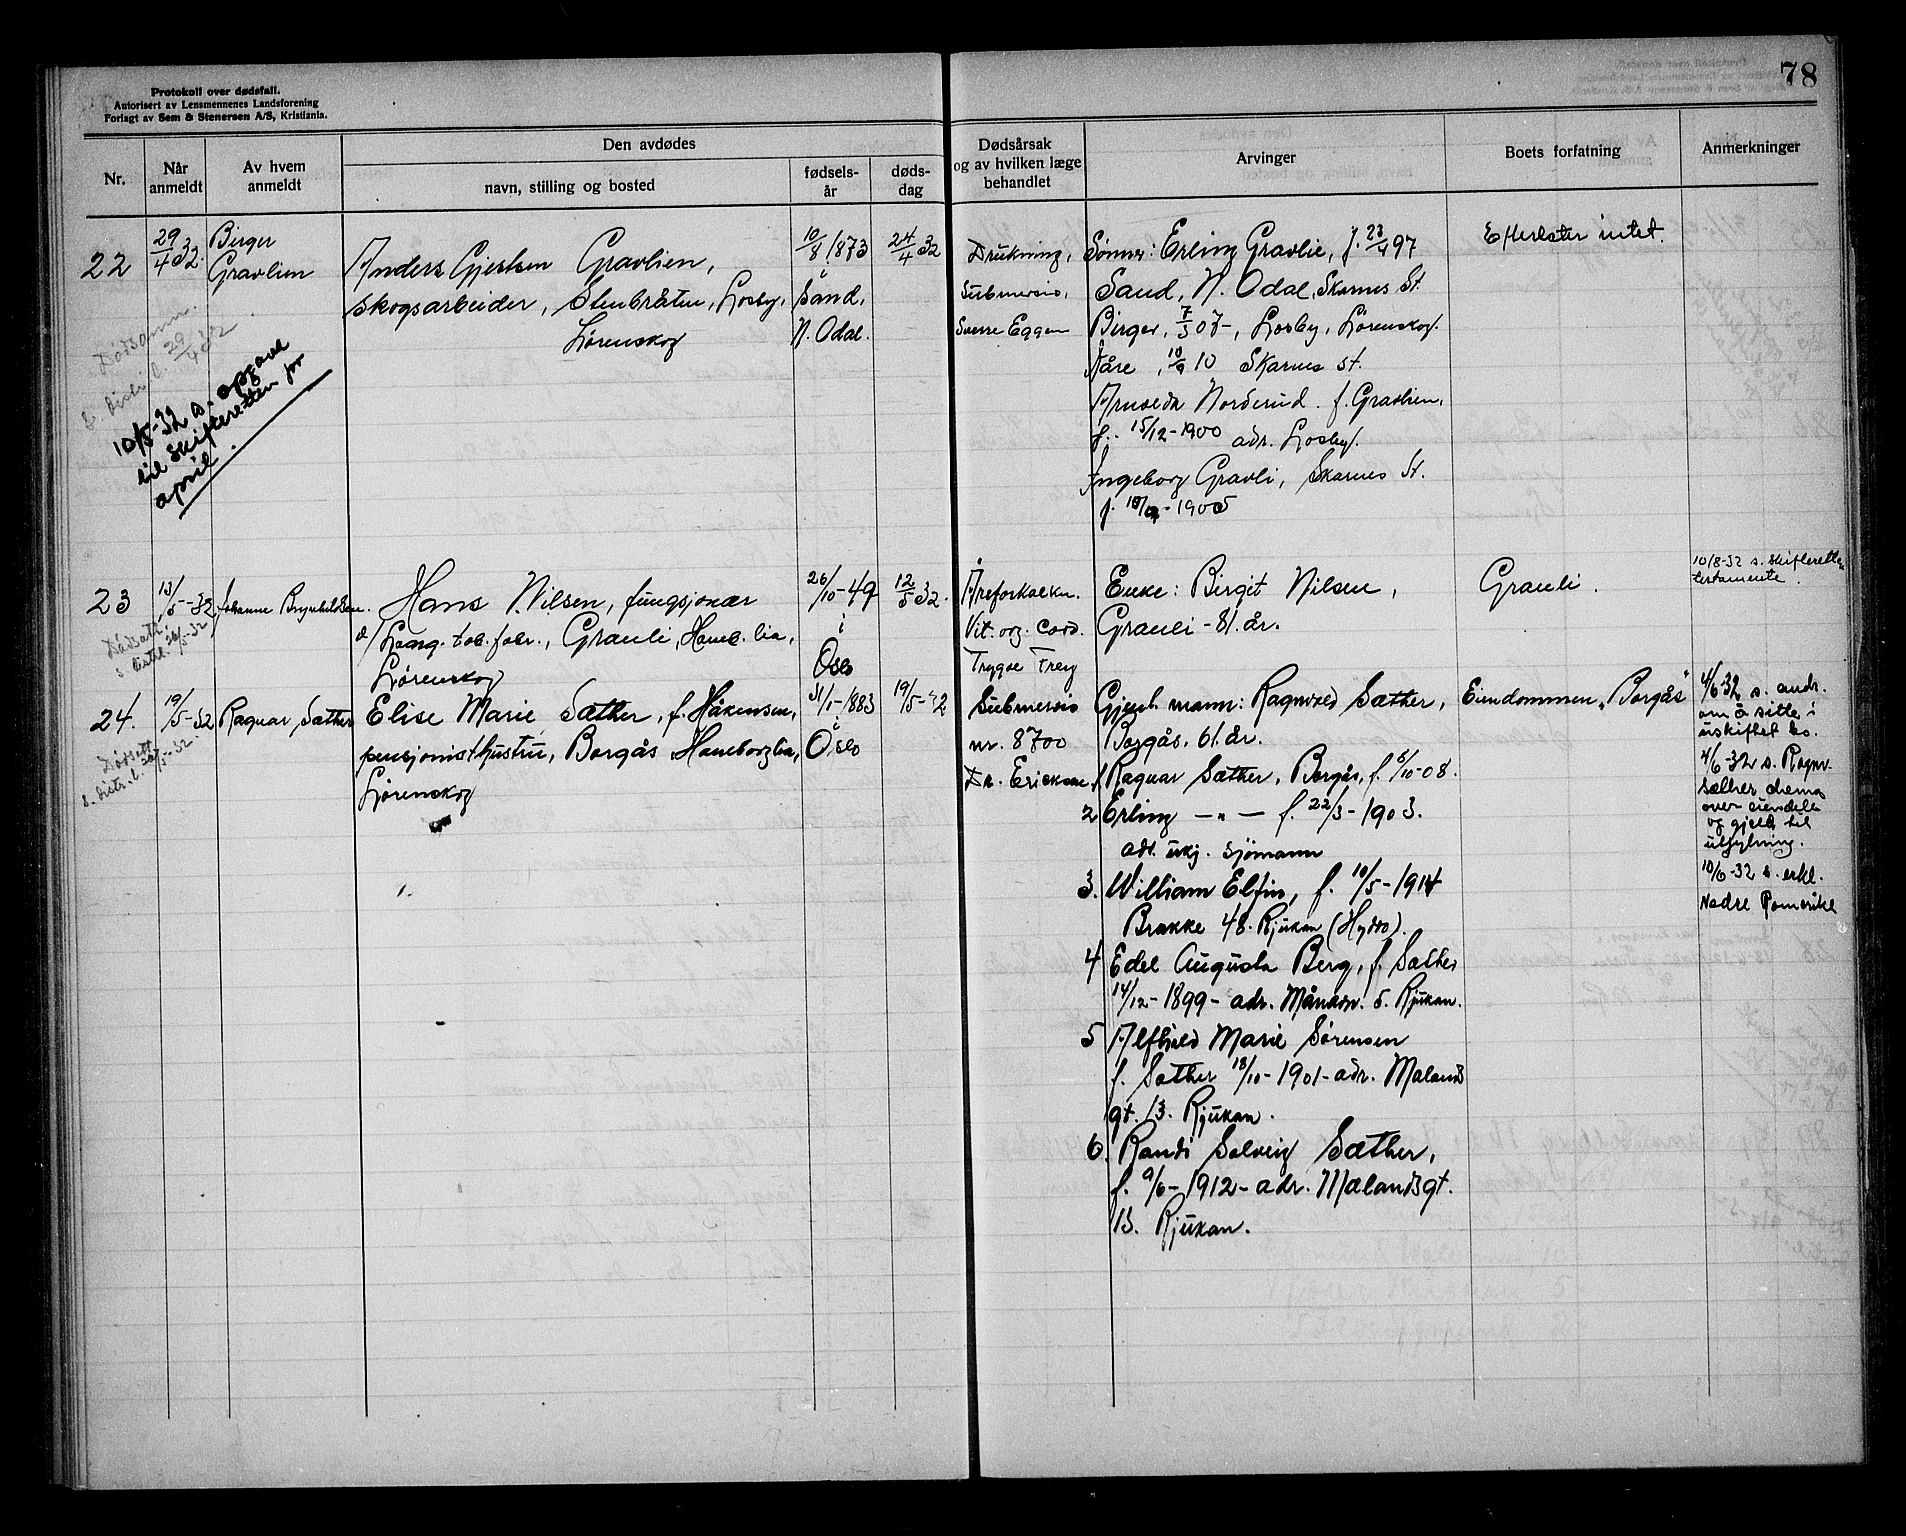 78
Protokoll over dødsfall.
Autorisert av Lensmennenes Landsforening
Forlagt av Sem & Stenersen A/S, Kristiania.
Nr.
Når anmeldt
Av hvem anmeldt
Den avdødes
navn, stilling og bosted
fødsels-år
døds-dag
Dødsårsak og av hvilken læge behandlet
Arvinger
Boets forfatning
Anmerkninger
22
29/4 32.
Birger
Gravlien
Anders Gjertsen Gravlien,
skogsarbeider, Stenbråten, Losby,
Lørenskog
10/8 1873
Sand,
N. Odal.
24/4 32
Drukning,
Submersio,
Sverre Eggen
Sønner: Erling Gravlie, f. 23/4 97
Sand, N. Odal, Skarnes St.
Birger, 7/5 07-, Losby, Lørenskog.
Kåre, 10/9 10 Skarnes st.
Norderud f. Gravlien,
f. 15/12-1900 adr. Losby.
Ingeborg Gravli, Skarnes St.
Efterlater intet.
29/4 32
10/5-32 s. opgave
til skifteretten for
april.
23
13/5-32
Johanne
Hans Nilsen, fungsjonær
v/ tob. fabr., Grauli, Haneb. lia,
Lørenskog
26/10-49
i
Oslo
12/5 32.
Åreforkalkn.
Vit. org. cord.
Trygve
Enke: Birgit Nilsen,
Grauli - 81. år.
Grauli.
10/8-32 s. skifteretten
testamente.
24.
19/5-32
Ragnar Sæther
Elise Marie Sæther, f. Håkensen,
pensjonisthustru, Borgås Haneborglia,
Lørenskog
31/5-1883
i
Oslo
19/5-32
Submersio
nr. 8700
Dr. Ericksen
Gjenl. mann: Ragnvald Sæther,
Borgås. 61. år.
1. Ragnar Sæther, Borgås, f. 5/10-08.
2 Erling — " — f. 22/3-1903.
adr. ukj. sjømann
3. William Elfin, f. 10/5-1914
Brakke 48. Rjukan (Hydro).
4 Edel Augusta Berg, f. Sæther
14/12-1899- adr. 5. Rjukan.
5 Alfhild Marie Sørensen
f. Sæther 18/10-1901- adr. Mælands
gt. 13. Rjukan.
6. Randi Solveig Sæther,
f. 9/6-1912- adr. Mælandsgt.
13. Rjukan.
Eiendommen "Borgås"
4/6-32 s. andr.
om å sitte i
uskiftet bo.
4/6-32 s. Ragnv.
Sæther skema
over eiendele
og gjeld til
utfylning.
10/6-32 s. erkl.
Nedre Romerike